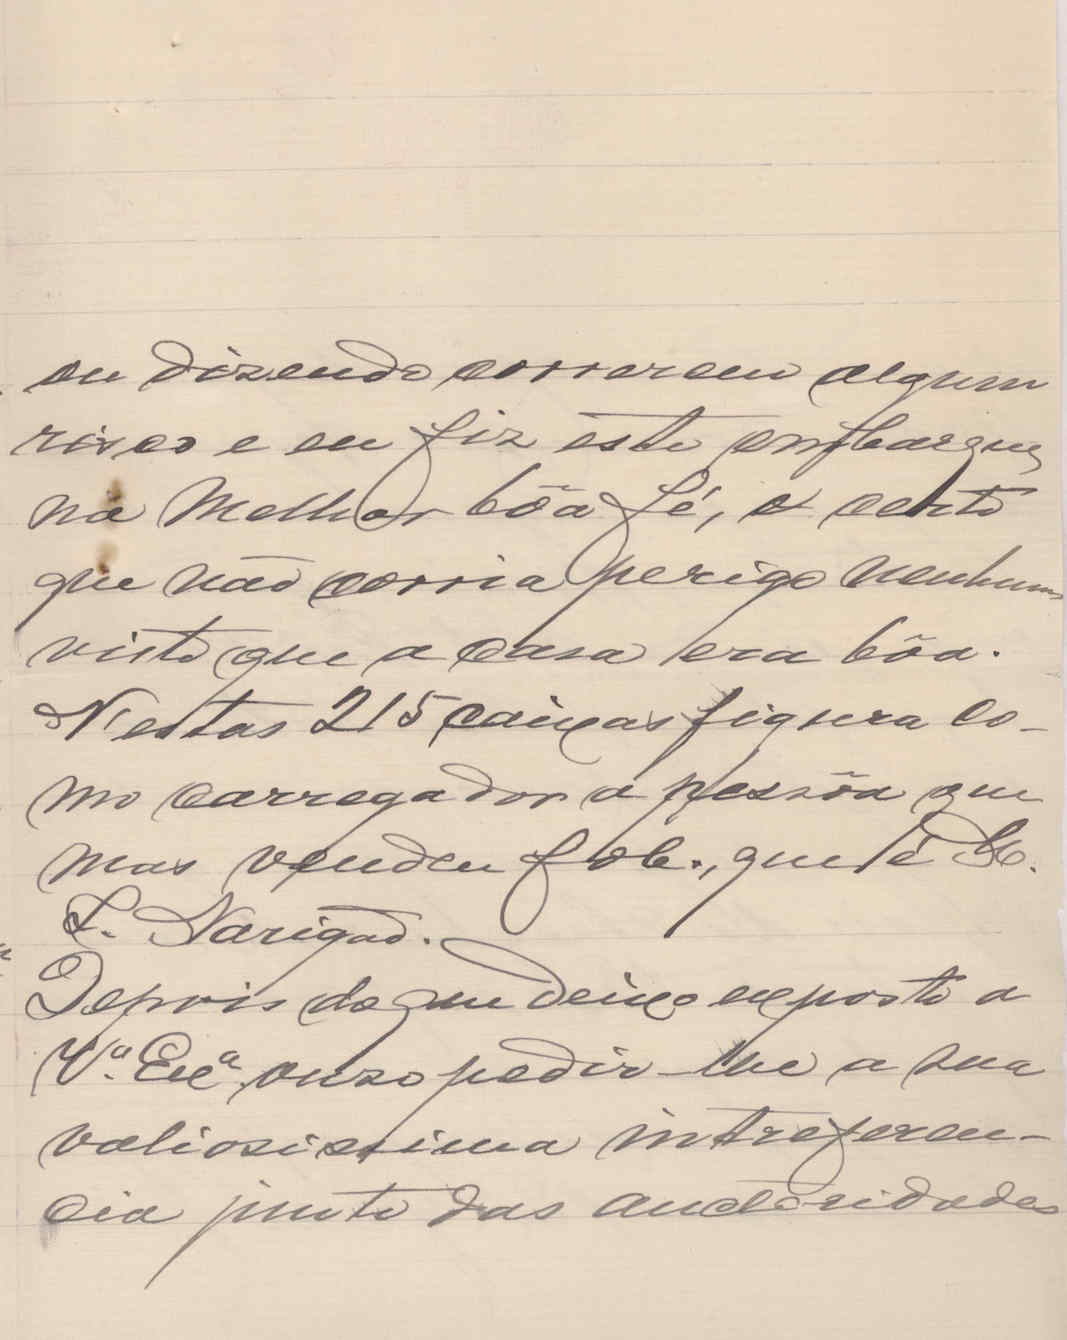 ou dizendo correrem algum
risco e eu fiz este embarque
na Melhor bõa fé, e certo
que não corria perigo nenhum
visto que a casa era bõa.
Nestas 215 caixas figura co-
mo carregador a pessõa que
mas vendeu fob., que é
L. Narigad.
Depois do que deixo exposto a
V.ª Exª ouzo pedir-lhe a sua
valiosissima intreferen-
cia junto das auctoridades